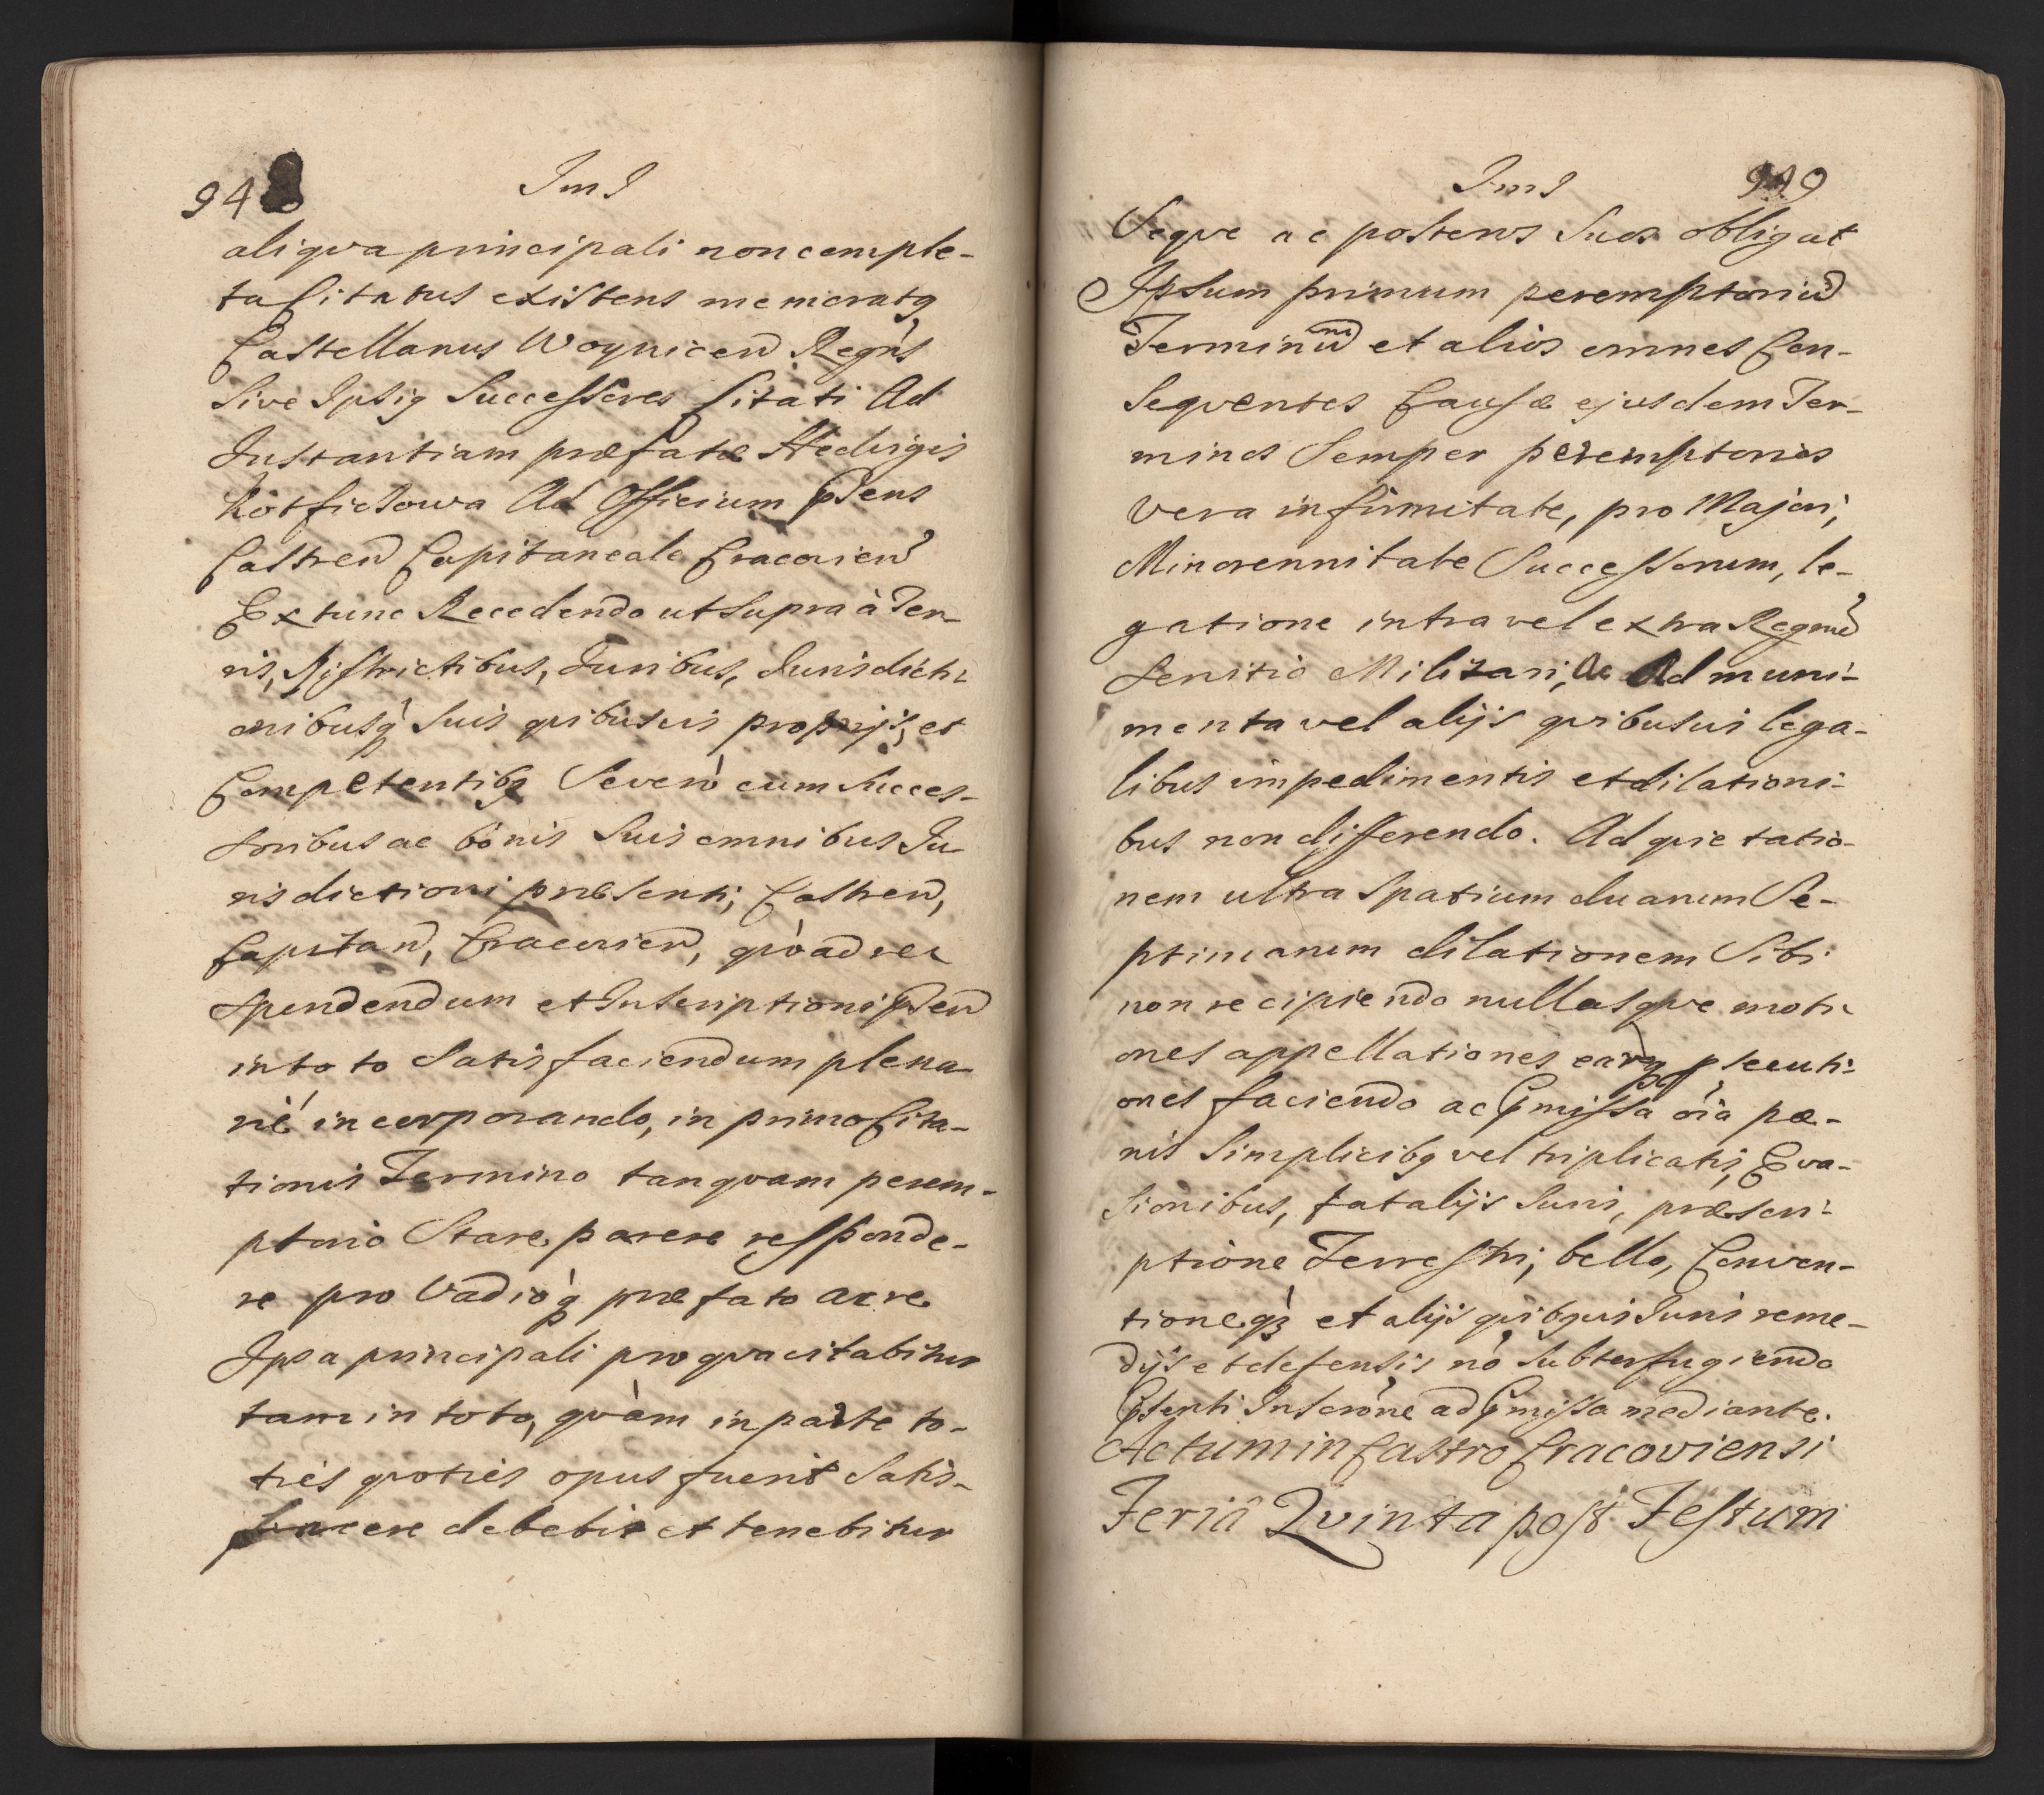 948
JmJ
aliqva principali non comple-
ta Citatus existens memoratq
Castellanus Woynicen Regns
Sive Ipsiq Successores Citati Ad
Instantiam præfatæ Hedvigis
Ad Officium Psens
Castren Capitaneale Cracovien
Extunc Recedendo ut supra à Ter-
ris, Districtibus, Juribus, Jurisdicti-
onibusq suis qvibusvis proprijs, et
Competentibq Seveno cum Succes-
soribus ac bonis suis omnibus Ju
risdictioni præsenti, Castren,
Capitan, Cracovien, qvoad res
spondendum et Inscriptioni Psen
in toto Satisfaciendum plena
riè incorporando, in primo Cita-
tionis Termino tanqvam perem-
ptorio Stare, parere responde-
re pro Vadioq præfato ac re
Ipsa principali pro qva citabitur
tam in toto, qvàm in parte to-
ties qvoties opus fuerit Satis-
facere debebit et tenebitur
JmJ
949
Seqve ac posteros Suos obligat
Ipsum primum peremptoriu
Terminu et alios omnes Con-
seqventes Causæ ejusdem Ter-
minos Semper peremptorios
vera infirmitate, pro Majori,
Minorennitate Successorum, le-
gatione intra vel extra Regnu
servitio Militari, Ad muni-
menta vel alijs qvibusvis lega-
libus impedimentis et dilationi-
bus non differendo. Ad qvietatio-
nem ultra spatium duarum Se-
ptimanarum dilationem Sibi
non recipiendo nullasqve moti-
ones appellationes earq psecuti-
ones faciendo ac Pmissa oia pæ-
nis Simplicibq vel triplicatis, Eva-
sionibus, fatalijs Juris, præscri-
ptione Terrestri, bello, Conven-
tioneq et alijs qvibqvis Juris reme-
dijs et defensis no subterfugiendo
Psenti Inscrone ad Pmissa mediante.
Actum in Castro Cracoviensi
Feriâ Qvinta post Festum